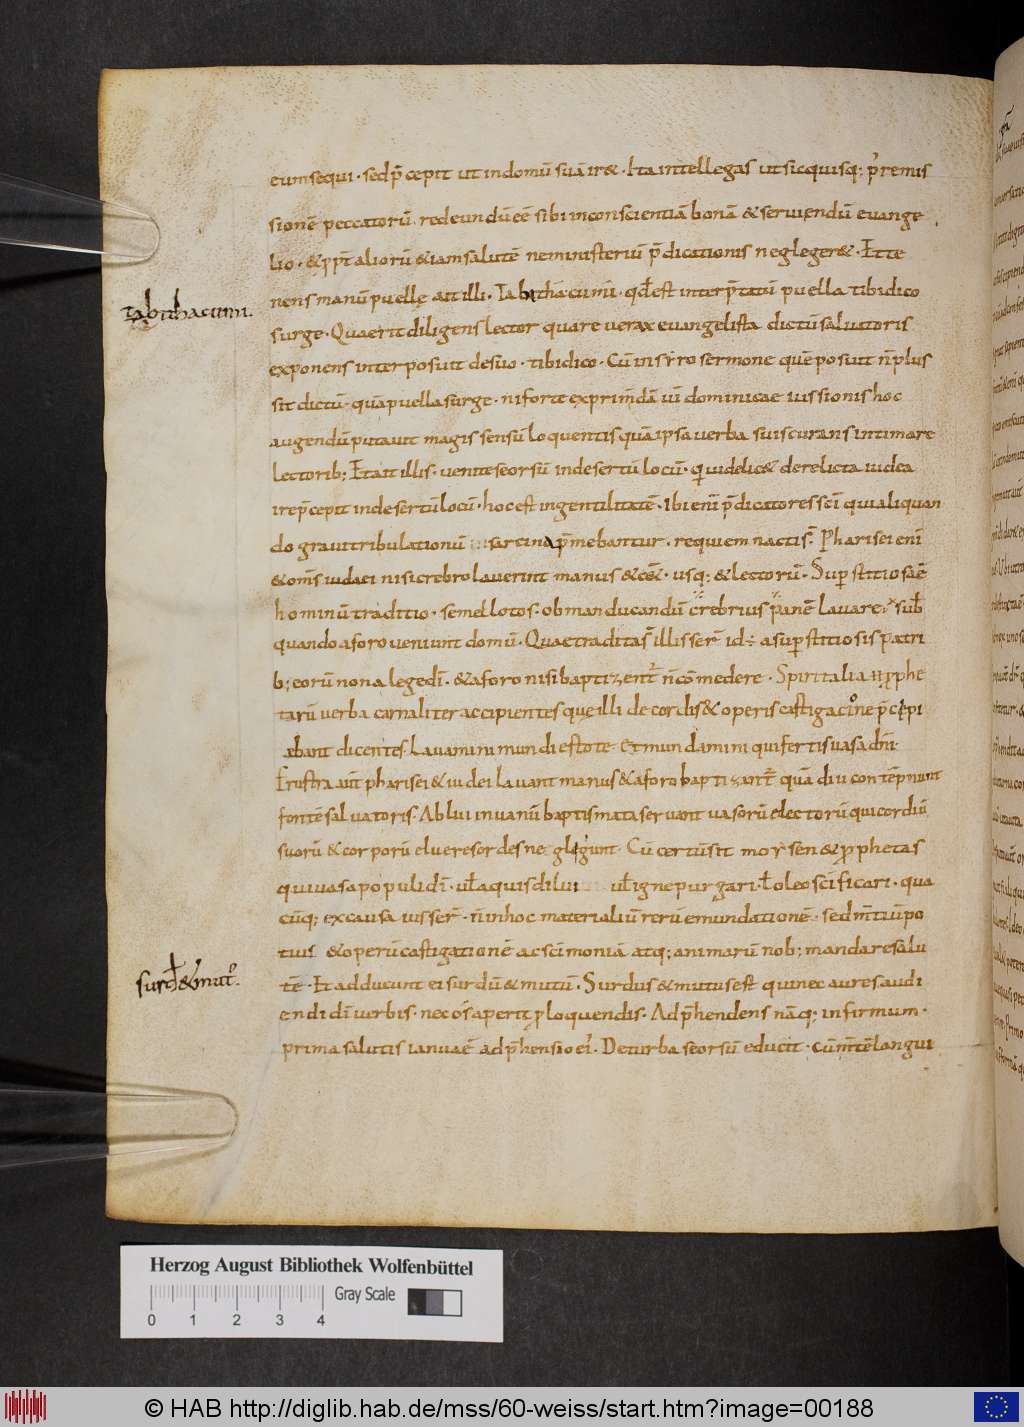 eum sequi · sed p̄cepit ut in domū suā ir& · Ita intellegas ut sic quisq; p̄ remis
sionē peccatorū redeundū eē sibi in conscientiā bonā & serviendū evange
lio · & ꝓpt̄ aliorū & iam salutē ne ministeriū p̄dicationis negleger& · Et te
nens manū puellę ait illi · Tabitha cumi · qd̄ est interp̄tatū puella tibi dico
Tabitha cumi.
surge · Quaerit diligens lector quare verax evangelista dictū salvatoris
exponens interposuit de suo · tibi dico · Cū in syro sermone quē posuit n̄ plus
sit dictū · quā puella surge · ni forte ad exprimdā vī dominicae iussionis hoc
augendū putavit magis sensū loquentis quā ipsa verba suis curans intimare
lectorib; Et ait illis · venite seorsū in desertū locū · qui delic& derelicta iudea
ire p̄cepit in desertū locū · hoc est in gentilitatē · Ibi enī p̄dicatores scī qui aliquan
do gravi tribulationū sarcina p̄mebantur · requiem nactis̄ · Pharisei enī
& om̄s iudaei nisi crebro laverint manus & cęt̄ · usq; & lectorū · Sup̄stitio saē
hominū traditio · semel lotos · ob manducandū crebrius panē lavare · sub̄
quando a foro veniunt domū · Quae traditas̄ illis ser̄ id ÷ a sup̄stitiosis patri
b; eorū non a lege dī · & a foro nisi baptizent̄ n̄ cōmedere · Spiritalia ꝓphe
tarū verba carnaliter accipientes que illi de cordis & operis castigacione p̄cipi
ebant dicentes · Lavamini mundi estote · et mundamini qui fertis vasa dn̄i ·
Frustra aūt pharisei & iudei lavant manus & a foro baptizant̄ quā diu contēpnunt
fontē salvatoris · Ablui in vanū baptismata servant vasorū electorū qui cordiū
suorū & corporū eluere sordes neglegunt · Cū certū sit moysen & ꝓphetas
qui vasa populi dī · vl̄ aquis dilui vl̄ igne purgari · l̄ oleo scīficari · qua
cūq; ex causa iusser̄ · n̄ in hoc materialiū rerū emundationē · sed m̄tiū po
tius & operū castigationē ac scīmoniā atq; animarū nob; mandare salu
tē · Et adducunt ei surdū & mutū · Surdus & mutus est qui nec aures audi
surd̄ & mut᾿.
endi dī verbis · nec os aperit ꝓ loquendis · Adp̄hendens nāq; infirmum ·
prima salutis ianua ē adp̄hensio eī · De turba seorsū educit · cū m̄tē langui
Herzog August Bibliothek Wolfenbüttel
Gray Scale
0 1 2 3 4
© HAB http://diglib.hab.de/mss/60-weiss/start.htm?image=00188